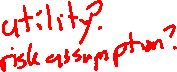 utility?
risk assumption?